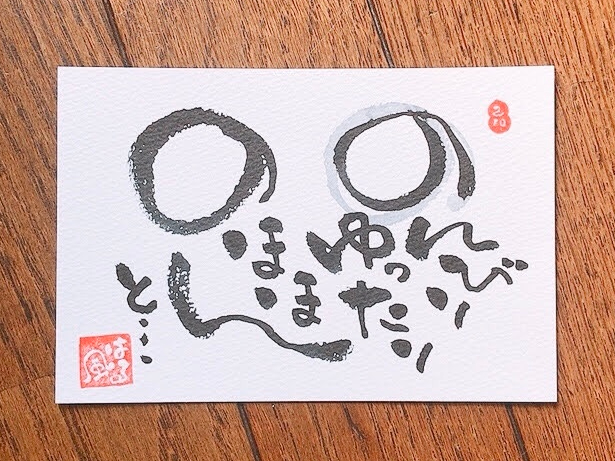 のんびり
ゆったり
のほほん
と…
はる風